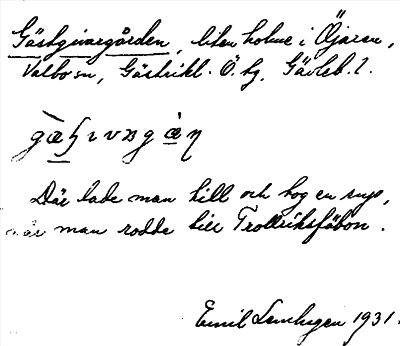 Gästgivargården, liten holme i Öjaren,
Valbo sn, Gästrikl. Ö. tg, Gävleb. l.
Där lade man till och tog en sup,
när man rodde till Trollriksfäbon.
Emil 1931.